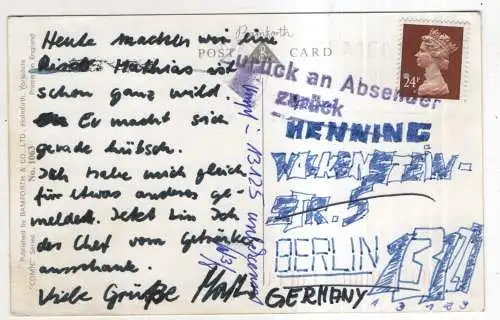 Published by BAMFORTH & CO., LTD · Holmfirth, Yorkshire
Printed in England
"COMIC" Series No. 1063
POST CARD
24P
Zurück an Absender
zurück
Heute machen wir eine
Disco. Mathias ist
schon ganz wild.
Er macht sich
gerade hübsch.
Ich habe mich gleich
für etwas anderes ge-
meldet. Jetzt bin Ich
der Chef vom Getränke
ausschank.
Viele Grüße
HENNING
STR. 5
BERLIN 134
GERMANY
1 3 1 8 9